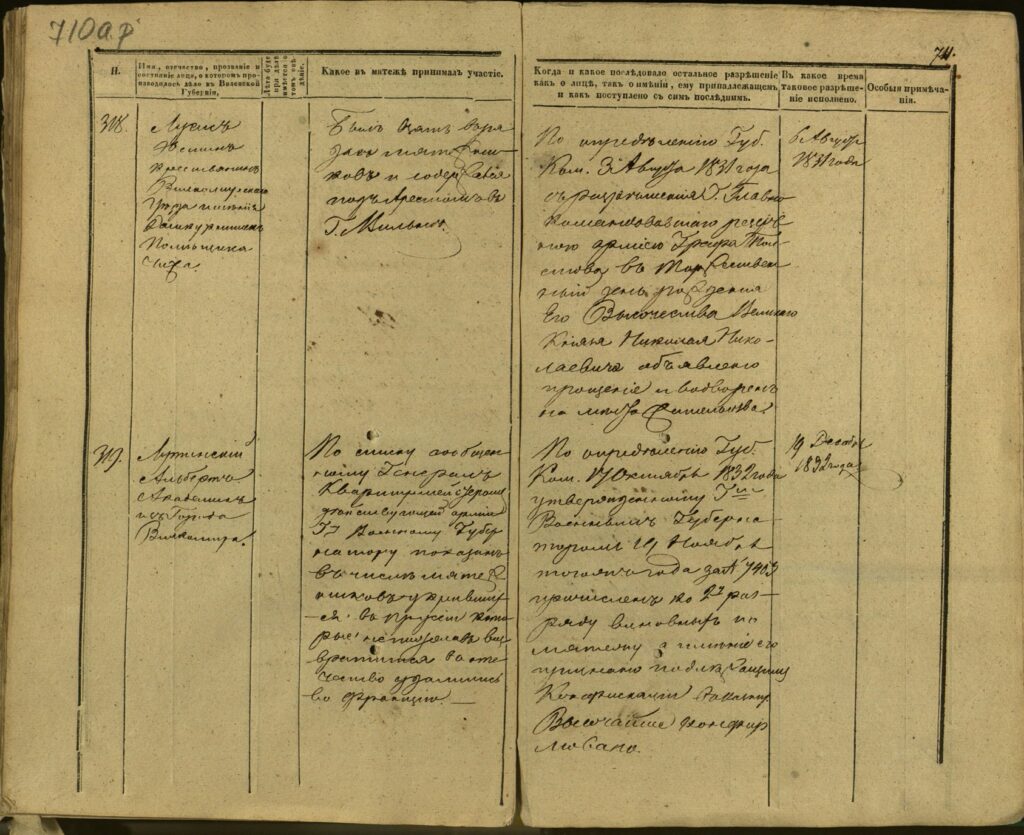 710 об
71.
Н.
Имя, отечество, прозваніе и
состояніе лица, о которомъ про-
изводилось дѣло въ Виленской
Губерніи.
Какое въ мятежѣ принималъ участіе.
Когда и какое послѣдовало остальное разрѣшеніе
какъ о лицѣ, такъ о имѣніи, ему принадлежащемъ
и какъ поступлено съ симъ послѣднимъ.
Въ какое время
таковое разрѣше-
ніе исполнено.
Особыя примѣча-
нія.
318.
Осипъ
Крестьянинъ
Вилкомирскаго
Уѣзда имѣнія
Помѣщика
Былъ взятъ въ ра
зныхъ мятежни-
ковъ и содержался
подъ Арестомъ въ
Г. Вильнѣ.
По опредѣленію Губ.
Ком. 3 Августа 1831 года
съ разрѣшенія Г. Главно
командовавшаго резерв
ною арміею Графа Тол-
стова въ Торжествен
ный день рожденія
Его Высочества Великаго
Князя Николая Нико-
лаевича объявлено
прощеніе и водворенъ
на мѣсто жительства
6 Августа
1831 года
319.
Альбертъ
Академикъ
изъ Города
Вилкомира.
По списку сообщен-
ному Генералъ
Квартирмейстеромъ
дѣйствующей арміи
Г. Военному Губер
натору показанъ
въ числѣ мяте
жниковъ укрывших
ся въ Пруссіи кото
рые не пожелавъ воз
вратиться въ оте
чество удалились
во Францію. —
По опредѣленію Губ.
Ком. 17 Октября 1832 года
утвержденному Гмъ
Военнымъ Губерна-
торомъ 19 Ноября
тогоже года за № 7403
причисленъ ко 2й раз-
ряду виновныхъ по
мятежу и имѣніе его
признано подлежащимъ
Конфискаціи
Высочайше конфир
мовано.
19 Декабря
1832 года